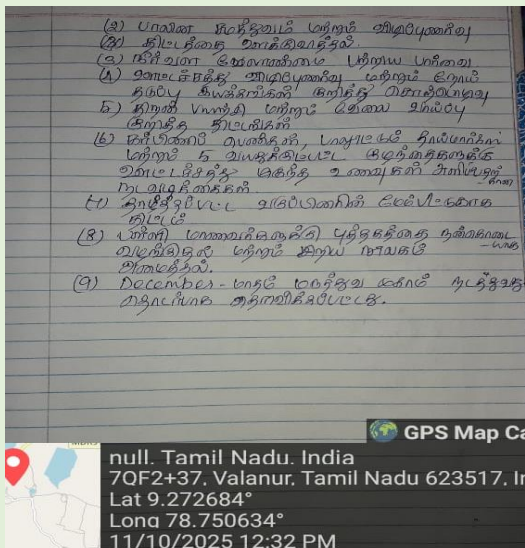 (2) பாலின சமத்துவம் மற்றும் விழிப்புணர்வு
திட்டத்தை ஊக்குவித்தல்.
(3) நீர்வள மேலாண்மை பற்றிய பார்வை
(4) ஊட்டச்சத்து விழிப்புணர்வு மற்றும் நோய்
தடுப்பு இயக்கங்கள் குறித்து சொற்பொழிவு
5) திறன் பயிற்சி மற்றும் வேலை வாய்ப்பு
குறித்த திட்டங்கள்
(6) கர்ப்பிணிப் பெண்கள், பாலூட்டும் தாய்மார்கள்
மற்றும் 5 வயதுக்குட்பட்ட குழந்தைகளுக்கு
ஊட்டச்சத்து மிகுந்த உணவுகள் அளிப்பதற்
கான
நடவடிக்கைகள்.
(7) தாழ்த்தப்பட்ட வகுப்பினரின் மேம்பாட்டுக்கான
திட்டம்
(8) பள்ளி மாணவர்களுக்கு புத்தகத்தை நன்கொடை
யாக
வழங்குதல் மற்றும் சிறிய நூலகம்
அமைத்தல்.
(9) December - மாதம் மருத்துவ முகாம் நடத்துவது
தொடர்பாக அறிவிக்கப்பட்டது.
GPS Map Ca
null, Tamil Nadu, India
7QF2+37, Valanur, Tamil Nadu 623517, In
Lat 9.272684°
Long 78.750634°
11/10/2025 12:32 PM